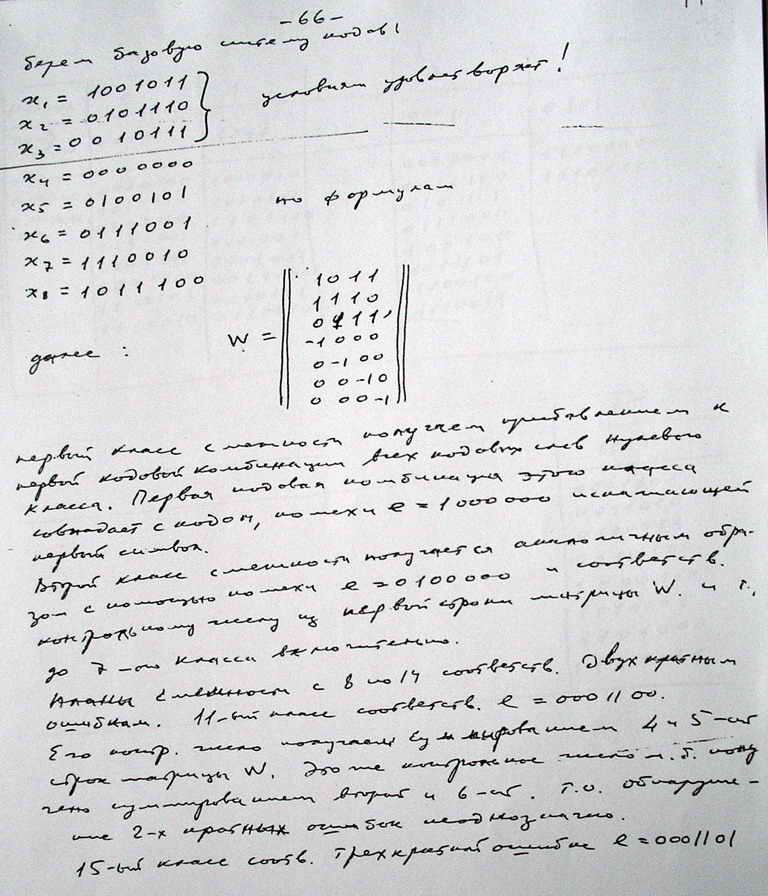 -66-
берем базовую систему кодов!
x₁ = 1001011
x₂ = 0101110
x₃ = 0010111
условиям удовлетворяет!
x₄ = 0000000
x₅ = 0100101
x₆ = 0111001
x₇ = 1110010
x₈ = 1011100
по формулам
далее :
W =
1011
1110
0111,
-1000
0-100
00-10
000-1
первый класс смежности получаем прибавлением к
первой кодовой комбинации всех кодовых слов нулевого
класса. Первая кодовая комбинация этого класса
совпадает с кодом, помехи e = 1000000 искажающей
первый символ.
Второй класс смежности получается аналогичным обра-
зом с помощью помехи e = 0100000 и соответств.
контрольному числу из первой строки матрицы W. и т.
до 7-ого класса включительно.
смежности с 8 по 14 соответств. Двухкратным
ошибкам. 11-ый класс соответств. e = 0001100.
Его контр. число получаем суммированием 4 и 5-ой
строк матрицы W. Это же контрольное число м.б. полу
чено суммированием второй и 6-ой. Т.о. обнаруже-
ние 2-х кратных ошибок неоднозначно.
15-ый класс соотв. трехкратной ошибке e = 0001101